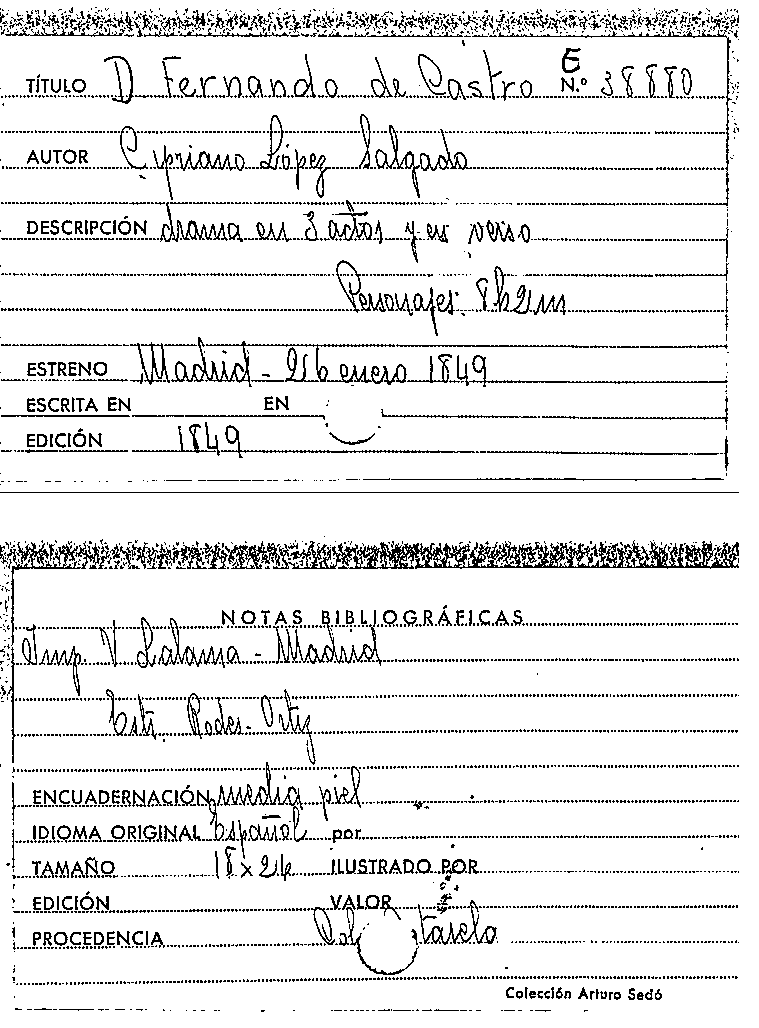 E
TÍTULO D Fernando de Castro N.º 38880
AUTOR Cipriano López Salgado
DESCRIPCIÓN drama en 3 actos y en verso
Personajes: 8h2m
ESTRENO Madrid - 26 enero 1849
ESCRITA EN EN
EDICIÓN 1849
NOTAS BIBLIOGRÁFICAS
Imp V Lalama - Madrid
Estr. Rodes - Ortiz
ENCUADERNACIÓN media piel
IDIOMA ORIGINAL Español por
TAMAÑO 18 x 26 ILUSTRADO POR
EDICIÓN VALOR
PROCEDENCIA
Colección Arturo Sedó